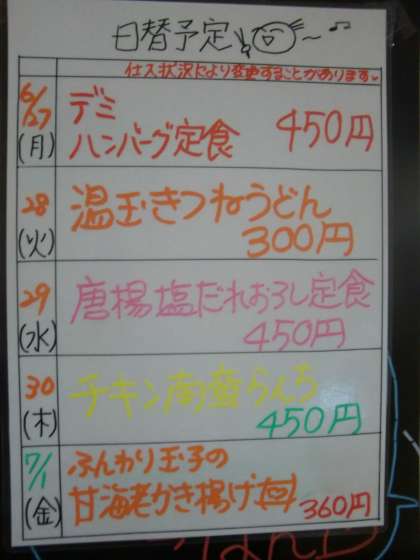 日替予定
仕入状況により変更することがあります。
6/27
(月)
デミ
ハンバーグ定食 450円
28
(火)
温玉きつねうどん
300円
29
(水)
唐揚塩だれおろし定食
450円
30
(木)
チキン南蛮らんち
450円
7/1
(金)
ふんわり玉子の
甘海老かき揚げ丼 360円